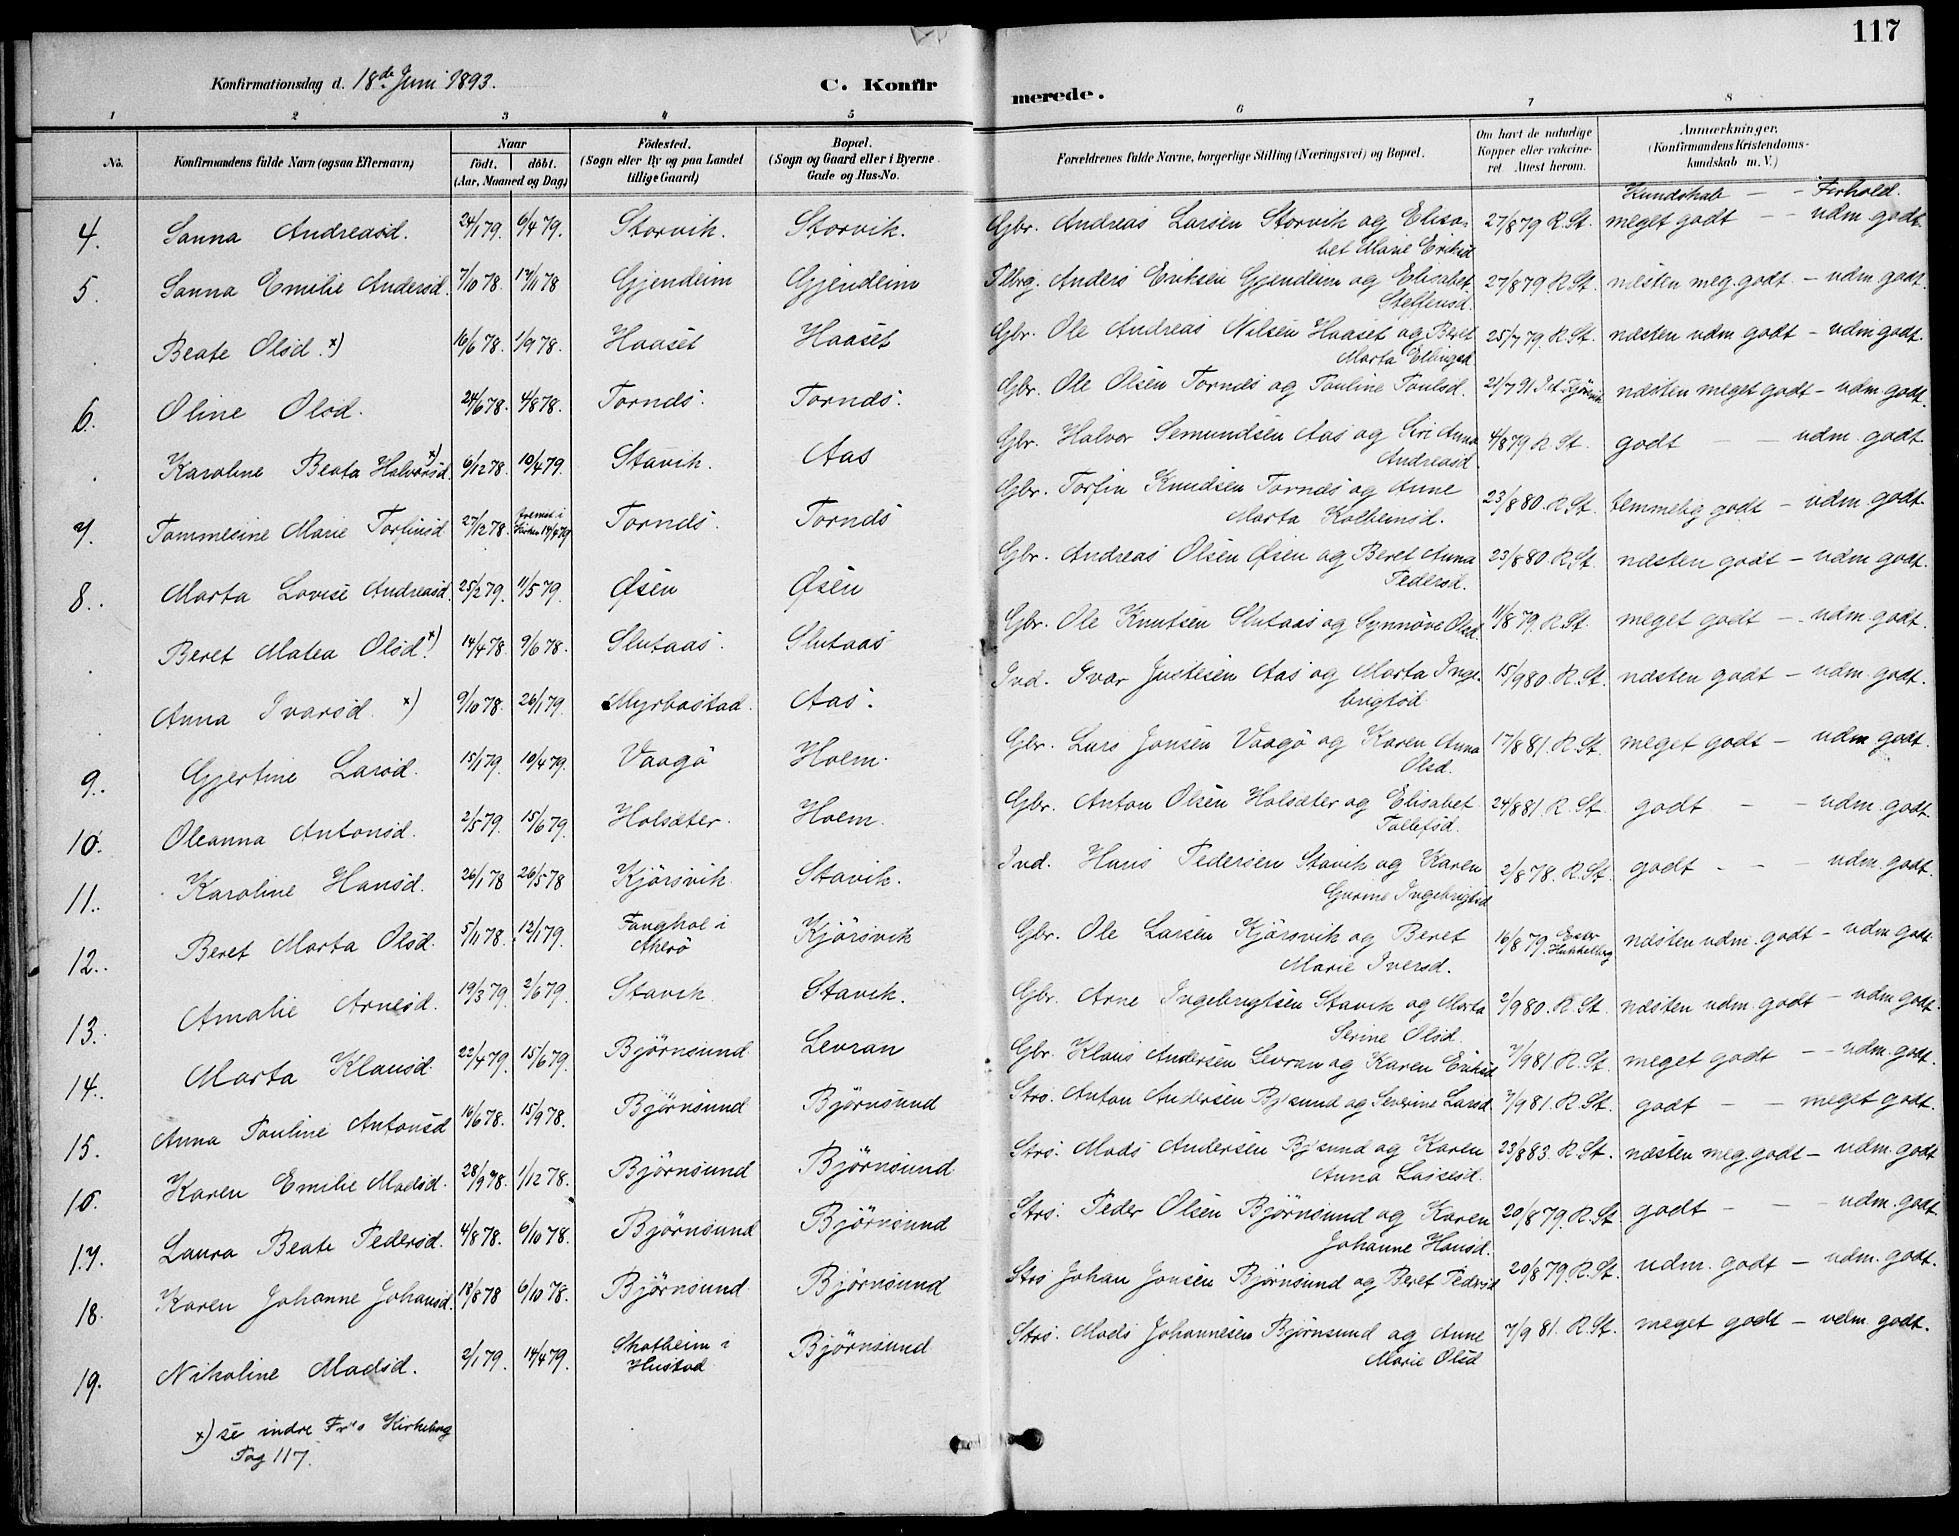 117
Konfirmationsdag d. 18de Juni 1893. C. Konfirmerede.
1 2 3 4 5 6 7 8
No. Konfirmandens fulde Navn (ogsaa Efternavn) Naar født. døbt. (Aar, Maaned og Dag) Fødested. (Sogn eller By og paa Landet tillige Gaard) Bopæl. (Sogn og Gaard eller i Byerne Gade og Hus-No. Forældrenes fulde Navne, borgerlige Stilling (Næringsvei) og Bopæl. Om havt de naturlige Kopper eller vakcineret Attest herom. Anmærkninger, (Konfirmandens Kristendomskundskab m. V.)
Kundskab — - Forhold.
4. Sanna Andreasd. 24/1 79. 6/4 79. Storvik. Storvik. Gbr. Andreas Larsen Storvik og Elisabet Marie Eriksd 27/8 79 R. St. meget godt - - udm. godt.
5. Sanna Emilie Andersd. 7/10 78. 17/11 78 Gjendeim Gjendeim Anders Eriksen Gjendeim og Elisabet Steffensd. 27/8 79. R. St. næsten meg. godt. - udm. godt.
. Beate Olsd. x) 16/6 78. 1/9 78. Haaset Haaset Gbr. Ole Andreas Nilsen Haaset og Beret Marta 25/7 79. R. St. næsten udm. godt - udm. godt.
6. Oline Olsd. 24/6 78. 4/8 78. Tornæs. Tornæs. Gbr. Ole Olsen Tornæs og Pauline Paulsd. 21/7 91 næsten meget godt - udm. godt.
. Karoline Beata Halvorsd. x) 6/12 78. 10/4 79. Stavik. Aas Gbr. Halvor Semundsen Aas og Siri Anna Andreasd. 4/8 79 R. St. godt — — udm. godt
7. Tommesine Marie Torfinsd 27/12 78. Fremst. i Kirken 14/4 79 Tornæs. Tornæs Gbr. Torfin Knudsen Tornæs og Anne Marta Kolbensd. 23/8 80. R. St. temmelig godt - udm. godt.
8. Marta Lovise Andreasd. 25/2 79. 11/5 79. Øsen Øsen Gbr. Andreas Olsen Øsen og Beret Anna Pedersd. 23/8 80. R. St. næsten godt - udm. godt.
. Beret Matea Olsd. x) 14/4 78. 9/6 78. Slutaas. Slutaas Gbr. Ole Knutsen Slutaas og Synnøve Olsd. 11/8 79. R. St. meget godt - udm. godt.
. Anna Ivarsd. x) 9/10 78. 26/1 79. Myrbostad. Aas. Ind. Ivar Justisen Aas og Marta Ingebrigtsd. 15/9 80. R. St. næsten godt - udm. godt.
9. Gjertine Larsd. 15/1 79. 10/4 79. Vaagø Holm. Gbr. Lars Jonsen Vaagø og Karen Anna Olsd. 17/8 81. R. St. meget godt - udm. godt.
10. Oleanna Antonsd. 2/5 79. 15/6 79. Holsæter. Holm. Gbr. Anton Olsen Holsæter og Elisabet Tollefsd. 24/8 81. R. St. godt - - udm. godt.
11. Karoline Hansd. 26/1 78 26/5 78 Kjørsvik. Stavik. Ind. Hans Pedersen Stavik og Karen Gurine Ingebrigtsd 2/8 78. R. St. godt - - udm. godt.
12. Beret Marta Olsd. 5/11 78. 12/1 79. Fanghol i Akerø Kjørsvik Gbr. Ole Larsen Kjørsvik og Beret Marie Iversd. 16/8 79. næsten udm. godt - udm. godt
13. Amalie Arnesd. 19/3 79. 2/6 79. Stavik Stavik. Gbr. Arne Ingebrigtsen Stavik og Marta Serine Olsd. 2/9 80. R. St. næsten udm. godt - udm. godt.
14. Marta Klausd. 22/4 79. 15/6 79. Bjørnsund Levran Gbr. Klaus Andersen Levran og Karen Eriksd 7/9 81. R. St. meget godt - - udm. godt.
15. Anna Pauline Antonsd 16/6 78. 15/9 78. Bjørnsund Bjørnsund Strs. Anton Andersen Bj'sund og Severine Larsd. 7/9 81. R. St. godt - - meget godt.
16. Karen Emilie Madsd. 28/9 78. 1/12 78. Bjørnsund Bjørnsund Strs. Mads Andersen Bj'sund og Karen Anna Lassesd. 23/8 83. R. St. næsten meg. godt - udm. godt
17. Laura Beate Pedersd. 4/8 78. 6/10 78. Bjørnsund Bjørnsund Strs. Peder Olsen Bjørnsund og Karen Johanne Hansd. 20/8 79. R. St godt - - udm. godt
18. Karen Johanne Johansd. 18/8 78 6/10 78. Bjørnsund Bjørnsund Strs Johan Jonsen Bjørnsund og Beret Pedersd 20/8 79. R. St. udm. godt - udm. godt.
19. Nikoline Madsd. 2/1 79. 14/4 79. Skotheim i Hustad Bjørnsund Strs. Mads Johannesen Bjørnsund og Anne Marie Olsd 7/9 81. R. St. meget godt - udm. godt.
x) se indre Fr's Kirkebog
Pag 117.